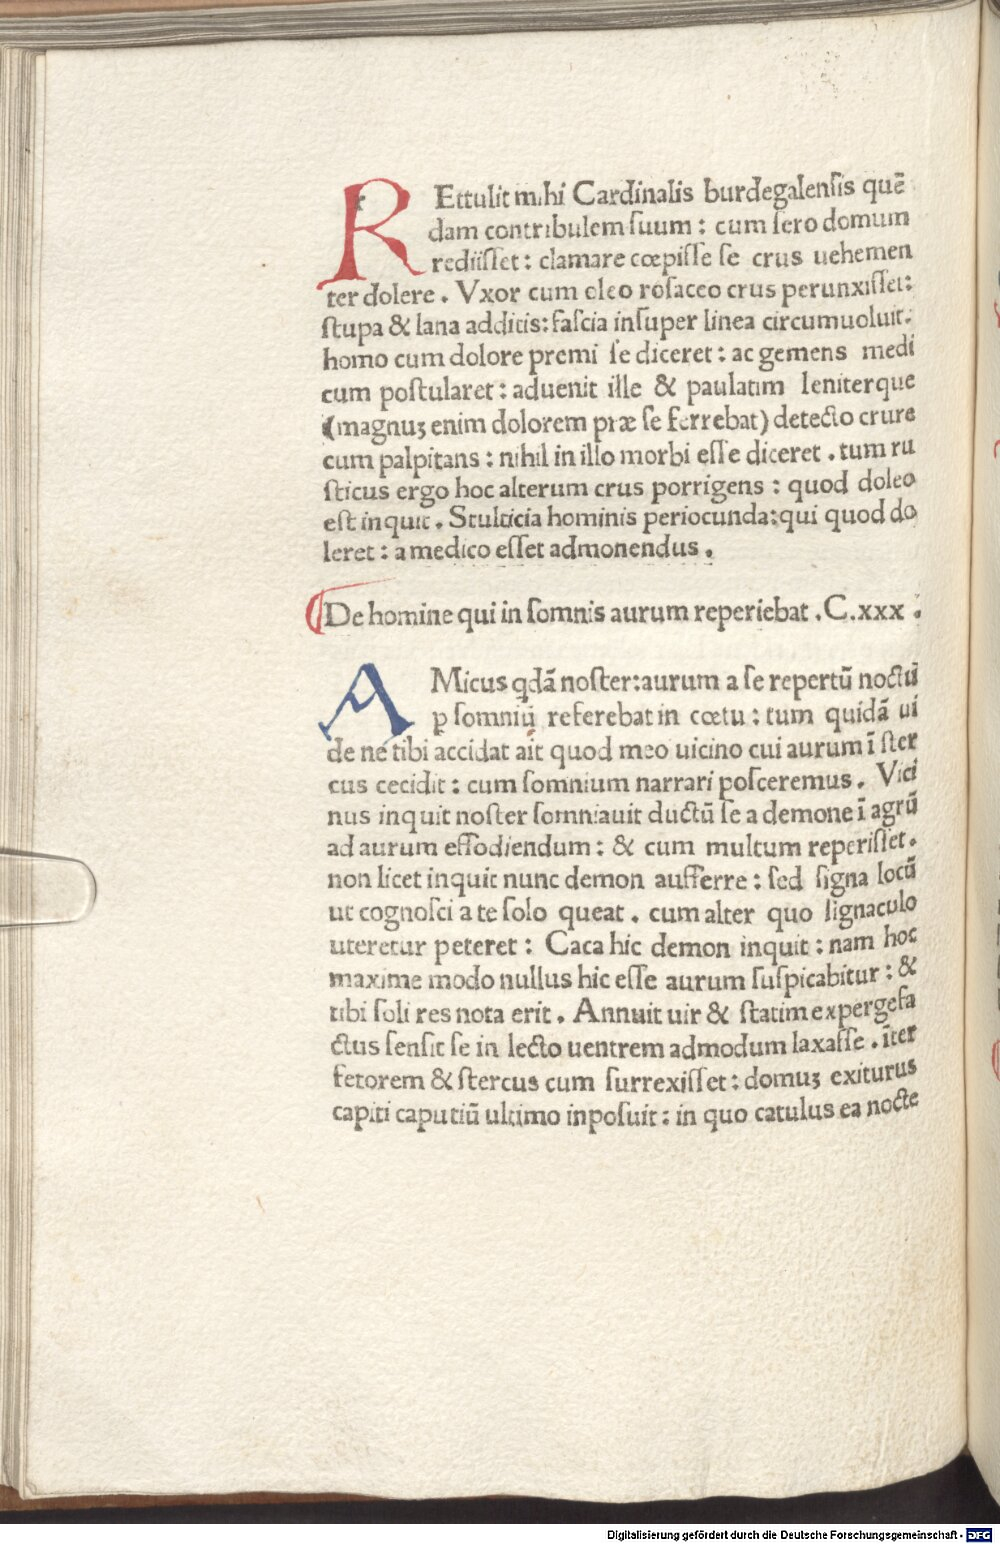 REttulit mihi Cardinalis burdegalensis quē
dam contribulem ſuum : cum ſero domum
rediiſſet : clamare cœpiſſe ſe crus uehemen
ter dolere . Vxor cum oleo roſaceo crus perunxiſſet :
ſtupa & lana additis : faſcia inſuper linea circumuoluit .
homo cum dolore premi ſe diceret : ac gemens medi
cum poſtularet : aduenit ille & paulatim leniterque
(magnuʒ enim dolorem præ ſe ferrebat) detecto crure
cum palpitans : nihil in illo morbi eſſe diceret . tum ru
ſticus ergo hoc alterum crus porrigens : quod doleo
eſt inquit . Stulticia hominis periocunda : qui quod do
leret : a medico eſſet admonendus .
De homine qui in ſomnis aurum reperiebat . C.xxx .
AMicus qdā noſter : aurum a ſe repertū noctu
ꝑ ſomniū referebat in cœtu : tum quidā ui
de ne tibi accidat ait quod meo uicino cui aurum ī ſter
cus cecidit : cum ſomnium narrari poſceremus . Vici
nus inquit noſter ſomniauit ductū ſe a demone ī agrū
ad aurum effodiendum : & cum multum reperiſſet .
non licet inquit nunc demon aufferre : ſed ſigna locū
ut cognoſci a te ſolo queat . cum alter quo ſignaculo
uteretur peteret : Caca hic demon inquit : nam hoc
maxime modo nullus hic eſſe aurum ſuſpicabitur : &
tibi ſoli res nota erit . Annuit uir & ſtatim expergefa
ctus ſenſit ſe in lecto uentrem admodum laxaſſe . īter
fetorem & ſtercus cum ſurrexiſſet : domuʒ exiturus
capiti caputiū ultimo inpoſuit : in quo catulus ea nocte
Digitalisierung gefördert durch die Deutsche Forschungsgemeinschaft - DFG